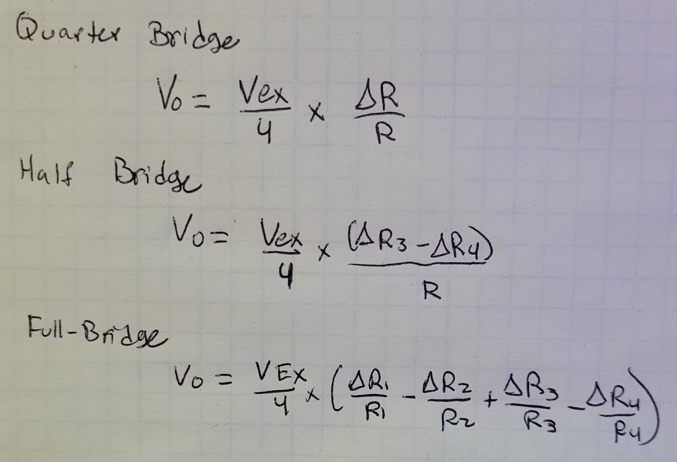 Quarter Bridge
Vo = Vex/4 × ΔR/R
Half Bridge
Vo = Vex/4 × (ΔR3 - ΔR4)/R
Full-Bridge
Vo = VEx/4 × (ΔR1/R1 - ΔR2/R2 + ΔR3/R3 - ΔR4/R4)